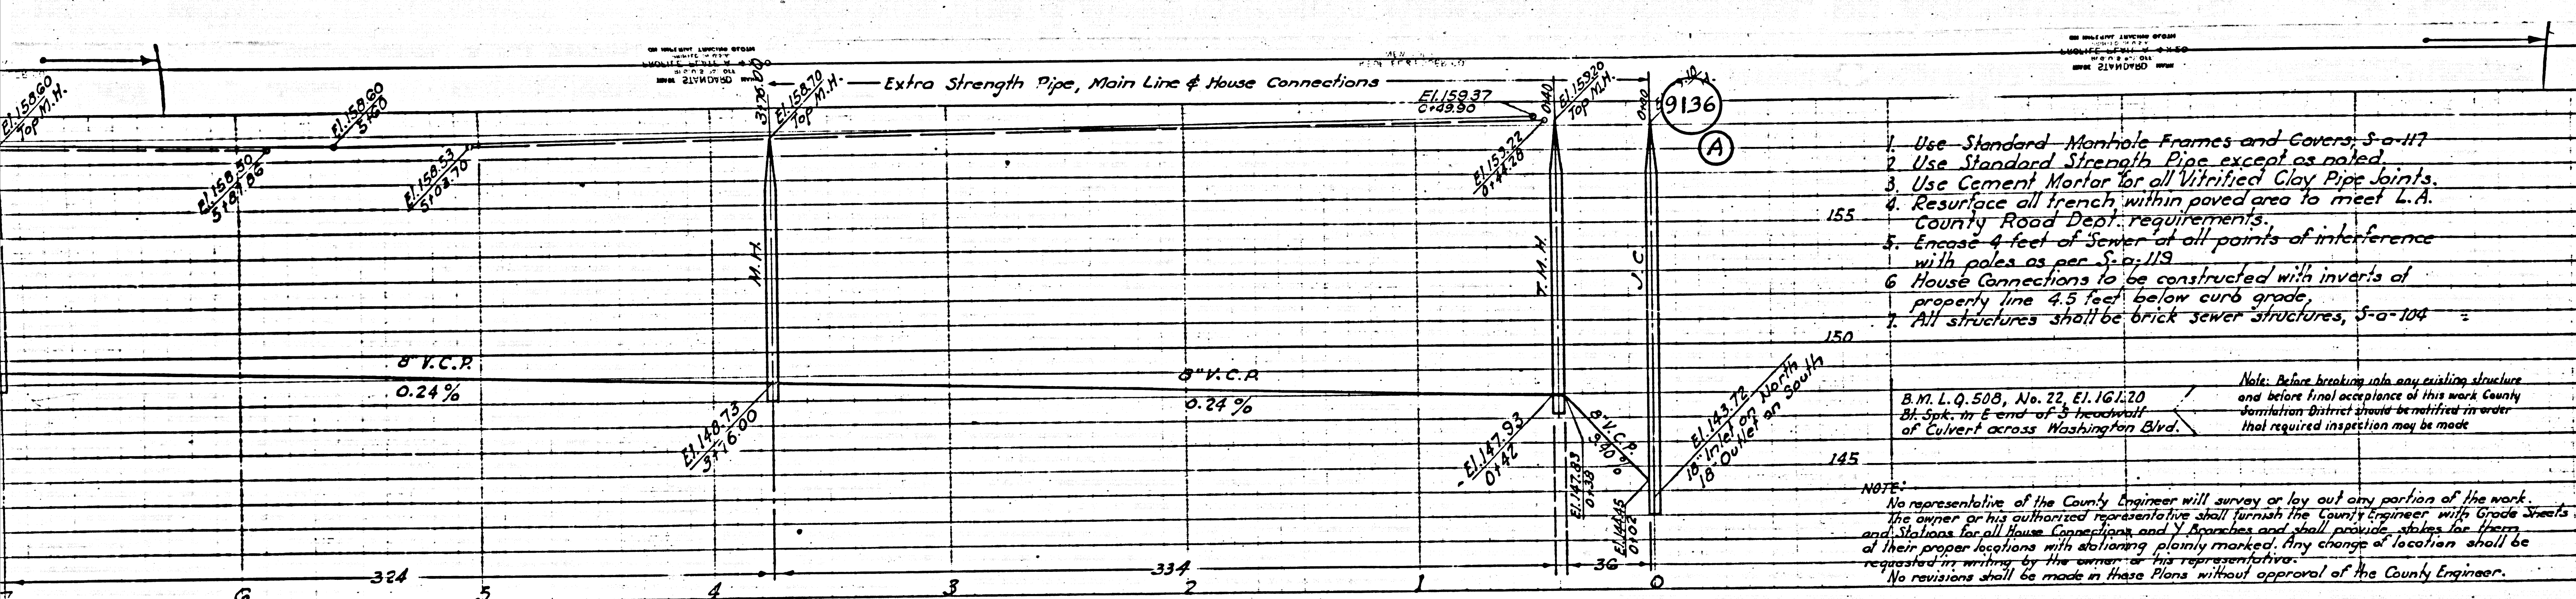 El. 158.60
Top M.H.
El. 158.50
5+87.86
El. 158.60
5+60
El. 158.53
5+03.70
3+76.00
El. 158.70
Top M.H.
Extra Strength Pipe, Main Line & House Connections
El. 159.37
0+49.90
El. 159.22
0+44.28
0+40
El. 159.20
Top M.H.
0+00
9136
A
PROFILE PLATE A 4 X 20
STANDARD
ON IMPERIAL TRACING CLOTH
PROFILE PLATE A 4 X 20
STANDARD
1. Use Standard Manhole Frames and Covers, S-a-117
2 Use Standard Strength Pipe except as noted.
3. Use Cement Mortar for all Vitrified Clay Pipe Joints.
4. Resurface all trench within paved area to meet L.A.
County Road Dept. requirements.
5. Encase 4 feet of Sewer at all points of interference
with poles as per S-a-119
6 House Connections to be constructed with inverts at
property line 4.5 feet below curb grade.
7. All structures shall be brick sewer structures, S-a-104
155
150
145
M.H.
T.M.H.
J.C.
8" V.C.P.
0.24 %
8" V.C.P.
0.24 %
8" V.C.P.
El. 148.73
3+76.00
El. 147.93
0+42
El. 147.83
0+38
El. 144.45
0+02
El. 143.72
18" Inlet on North
18" Outlet on South
B.M. L.Q. 508, No. 22, El. 161.20
Bt. Spk. in E end of S headwall
of Culvert across Washington Blvd.
Note: Before breaking into any existing structure
and before final acceptance of this work County
Sanitation District should be notified in order
that required inspection may be made
NOTE:
No representative of the County Engineer will survey or lay out any portion of the work.
The owner or his authorized representative shall furnish the County Engineer with Grade Sheets
and Stations for all House Connections and Y Branches and shall provide stakes for them
at their proper locations with stationing plainly marked. Any change of location shall be
requested in writing by the owner or his representative.
No revisions shall be made in these Plans without approval of the County Engineer.
324
334
36
6
5
4
3
2
1
0